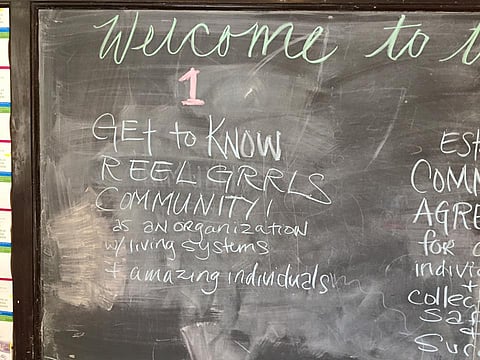 Welcome to t
1
GEt to KNOW
REEL GRRLS
COMMUNITY!
as an organization
w/ living systems
+ amazing individuals
Est
COMM
AGRE
for
individ
+
collec
Saf
&
Suc